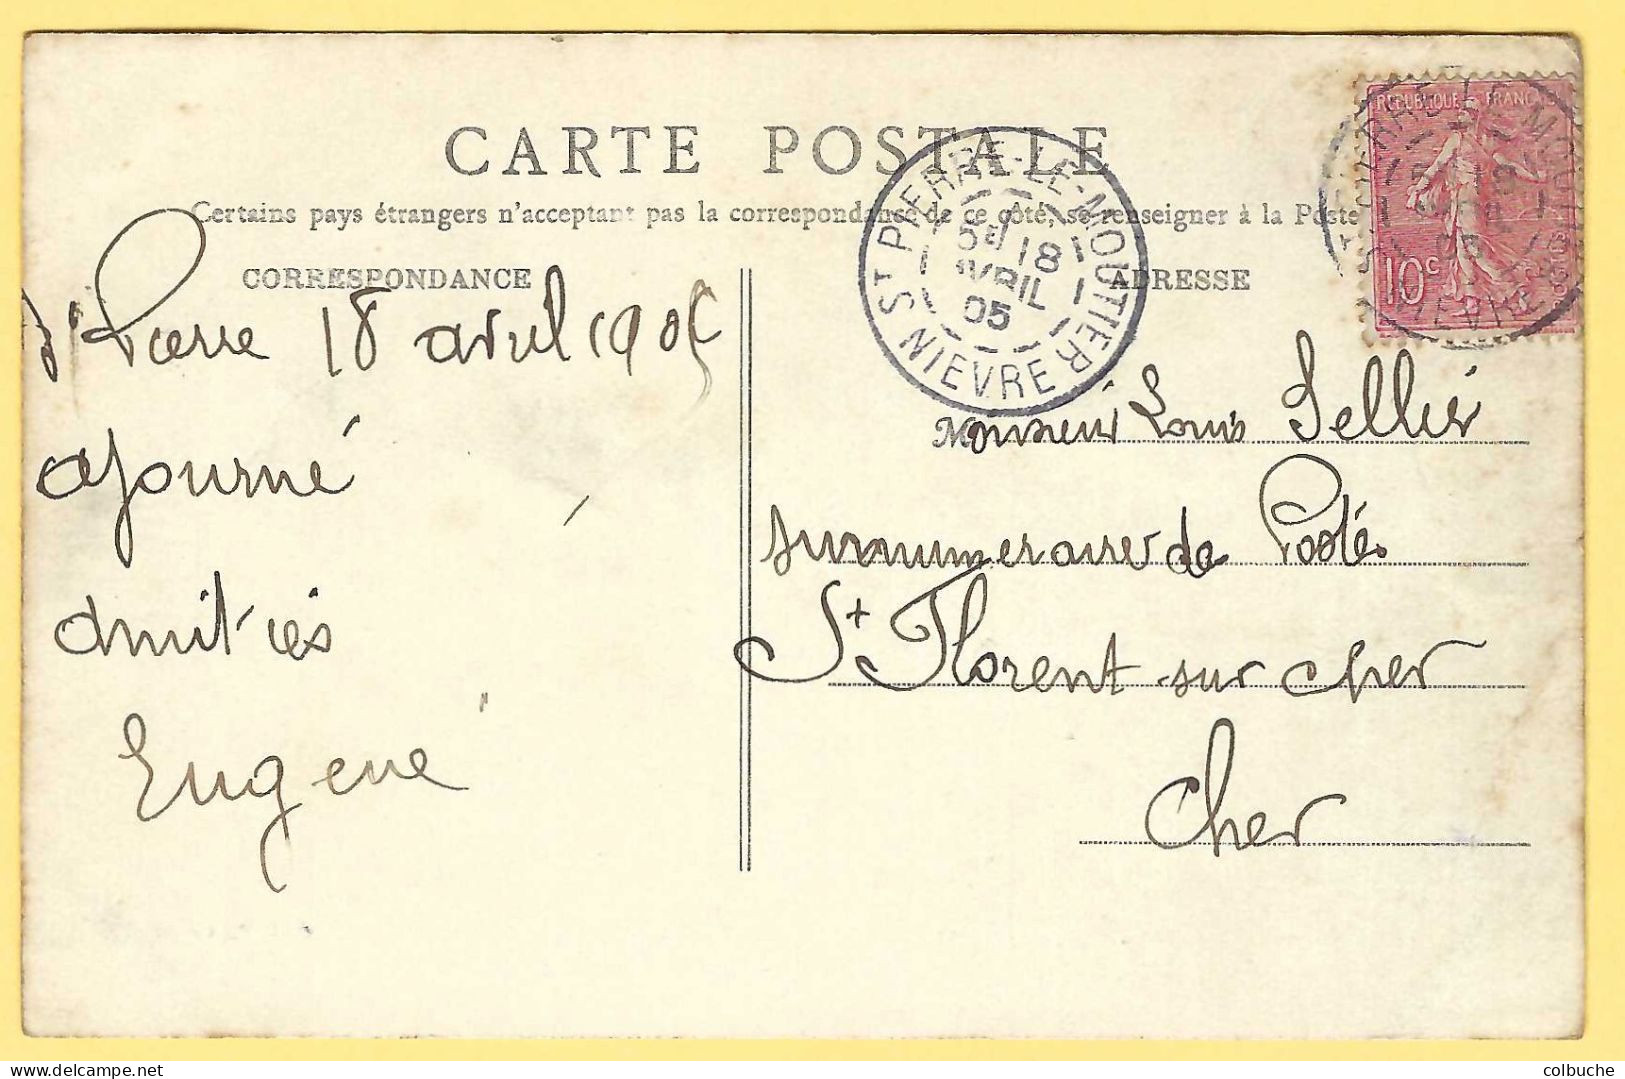 CARTE POSTALE
Certains pays étrangers n'acceptent pas la correspondance de ce côté, se renseigner à la Poste
CORRESPONDANCE
St Pierre 18 avril 1905
ajourné
amitiés
Eugene
ADRESSE
Monsieur Louis Sellier
surnumeraire de Postes
St Florent-sur cher
Cher
ST PIERRE-LE-MOUTIER
5E 18
AVRIL
05
NIEVRE
REPUBLIQUE FRANÇAISE
10c
colbuche